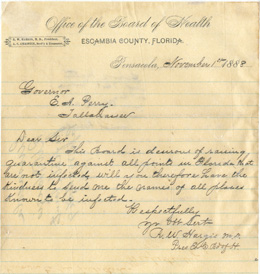 Office of the Board of Health
ESCAMBIA COUNTY, FLORIDA.
Pensacola, November 1st 1888
Governor
E. A. Perry.
Tallahassee
Dear Sir
This Board is desirous of raising
quarantine against all points in Florida that
are not infected, will you therefore have the
kindness to send me the names of all places
known to be infected.
Respectfully
yr Obt Servt
R. W. Hargis M.D.